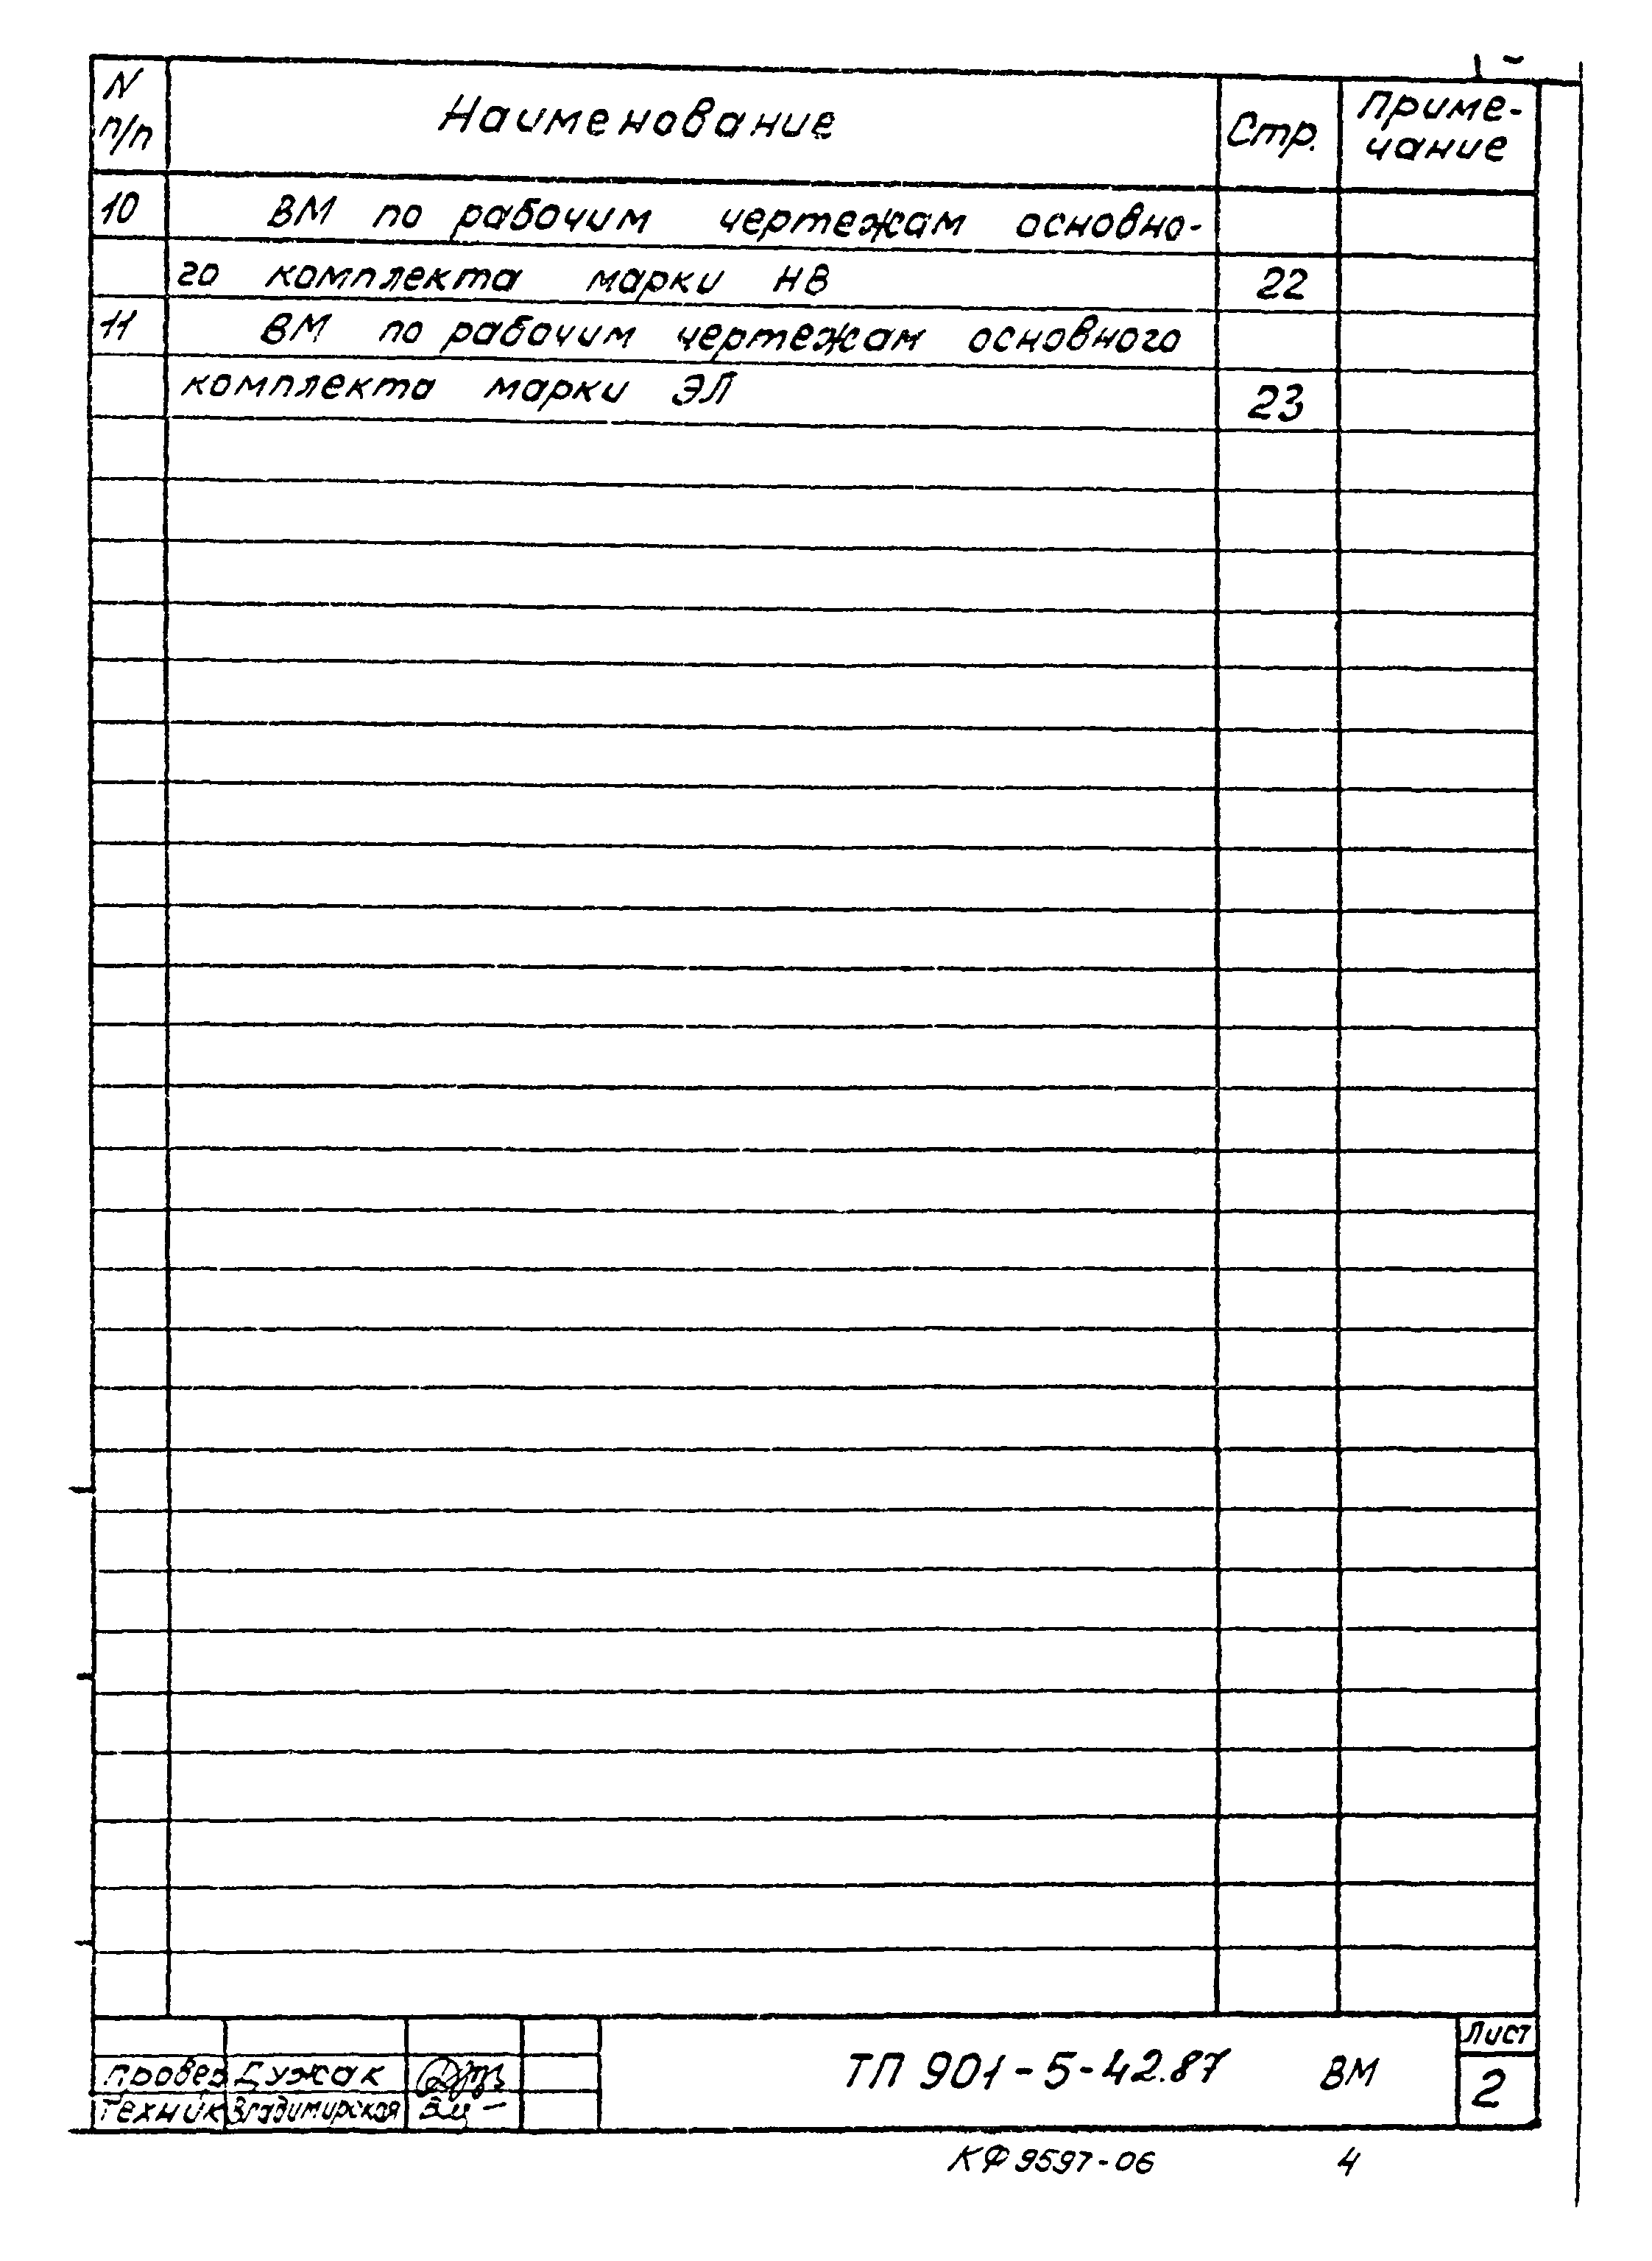 N п/п Наименование Стр. Приме-
чание
10 ВМ по рабочим чертежам основно-
го комплекта марки НВ 22
11 ВМ по рабочим чертежам основного
комплекта марки ЭЛ 23
Лист
Провер Дужак
ТП 901-5-42.87 ВМ 2
Техник Владимирская
КФ 9597-06 4